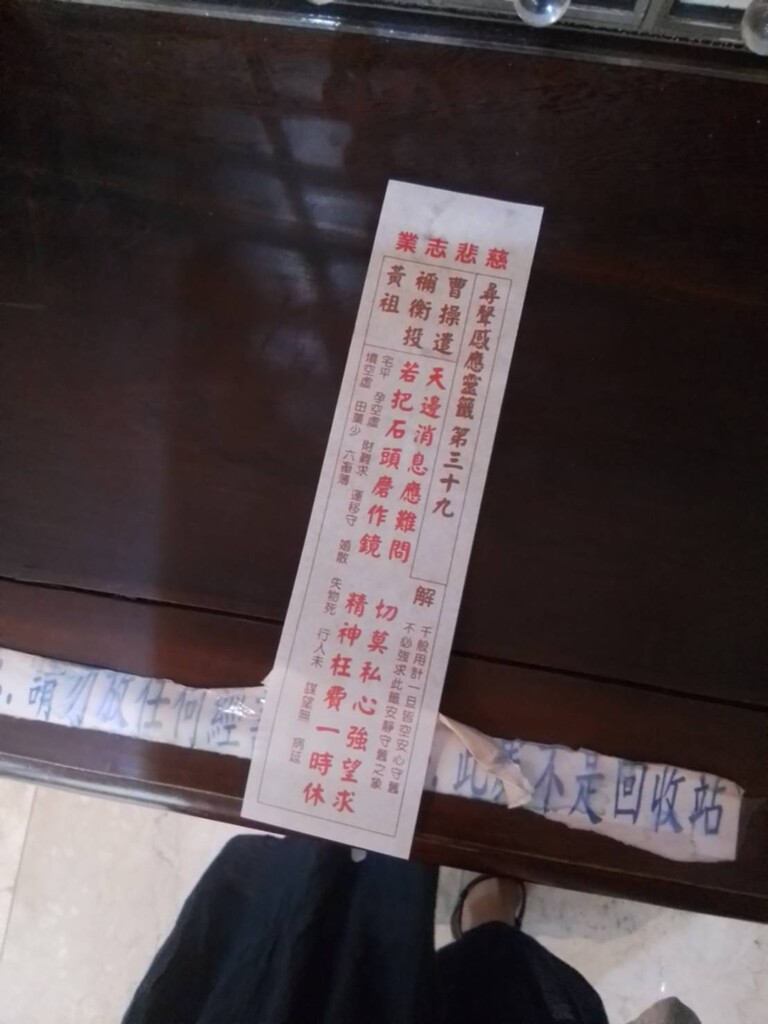 慈悲志業
尋聲感應靈籤 第三十九
曹操遣
禰衡投
黃祖
天邊消息應難問
切莫私心強望求
若把石頭磨作鏡
精神枉費一時休
解
千般用計一旦皆空安心守舊
不必強求此籤安靜守舊之象
宅平 孕空虛 財難求 運移守 婚散 失物死 行人未 謀望無 病延
墳空虛 田蠶少 六畜薄
請勿放任何經
不是回收站